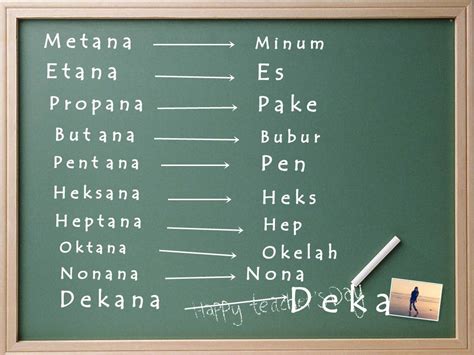 Metana Minum
Etana Es
Propana Pake
Butana Bubur
Pentana Pen
Heksana Heks
Heptana Hep
Oktana Okelah
Nonana Nona
Dekana Deka
Happy teacher's Day